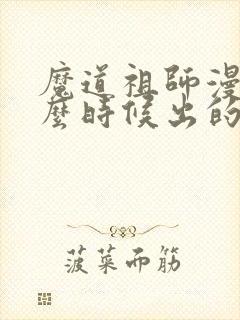 魔道祖師漫
麼時候出的
菠菜而筋